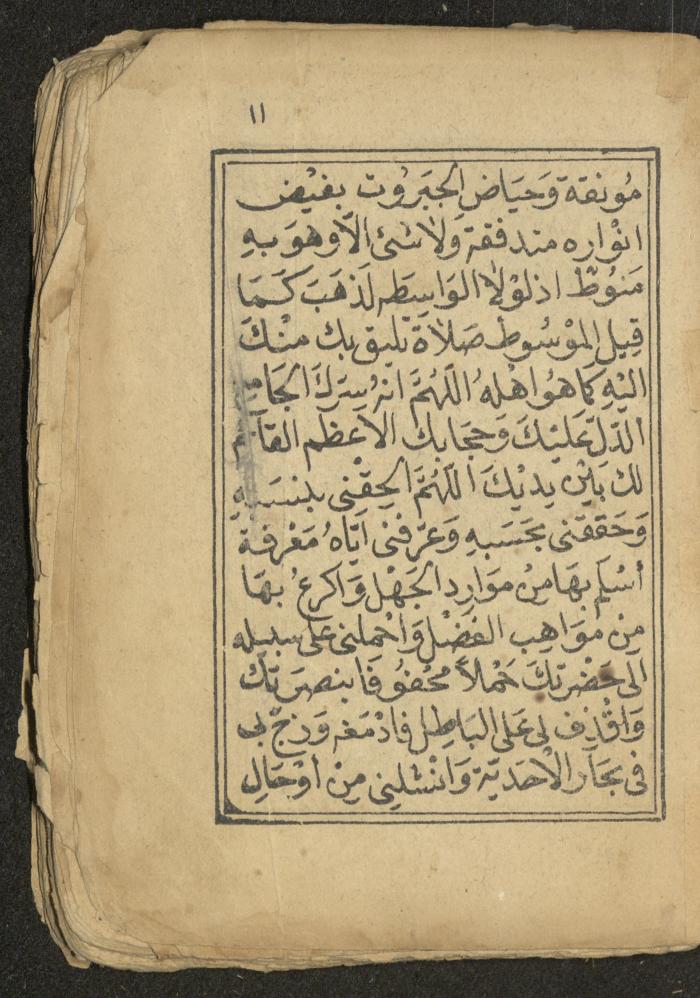 ١١
مُونِقَة وَحِيَاض الجَبَرُوت بِفَيْضِ
انْوَارِه مندفقة وَلَا شئ الَّا وهُوَ بِهِ
مَنوُطْ اذلوْلَا الوَاسِطه لَذهَبَ كَمَا
قِيل المَوْسُوط صَلاَة تليق بك مِنْكَ
اليْهِ كَمَا هُوَ اهْلهُ اللَّهُمَّ انهُ سِرّكَ الجَامِع
الدَّل عَلَيْكَ وَحِجَابك الاَعظم القآئم
لك بَيْن يدَيْكَ اَللَّهُمَّ الحِقْنِى بِنسَبِهِ
وَحَققنى بحَسَبهِ وَعَرّفنى ايّاهُ مَعْرفةً
أسْلَم بهَا مِنْ مَوَارِد الجَهْل وَاكرعُ بهَا
مِن مَوَاهِب الفضْل وَاحْملنى عَلى سبيله
الَى حَضْرتكَ حَمْلاً مَحْفُوفا بنصرَتك
وَاقْذِف بى عَلى البَاطِل فادْمَغه وَزجّ بى
فى بحَار الاَحَدِيّة وَانشلنِى مِنْ أوْحَالِ